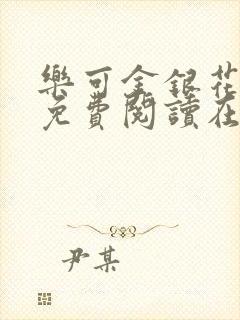 樂可金銀花
免費閱讀在
尹某